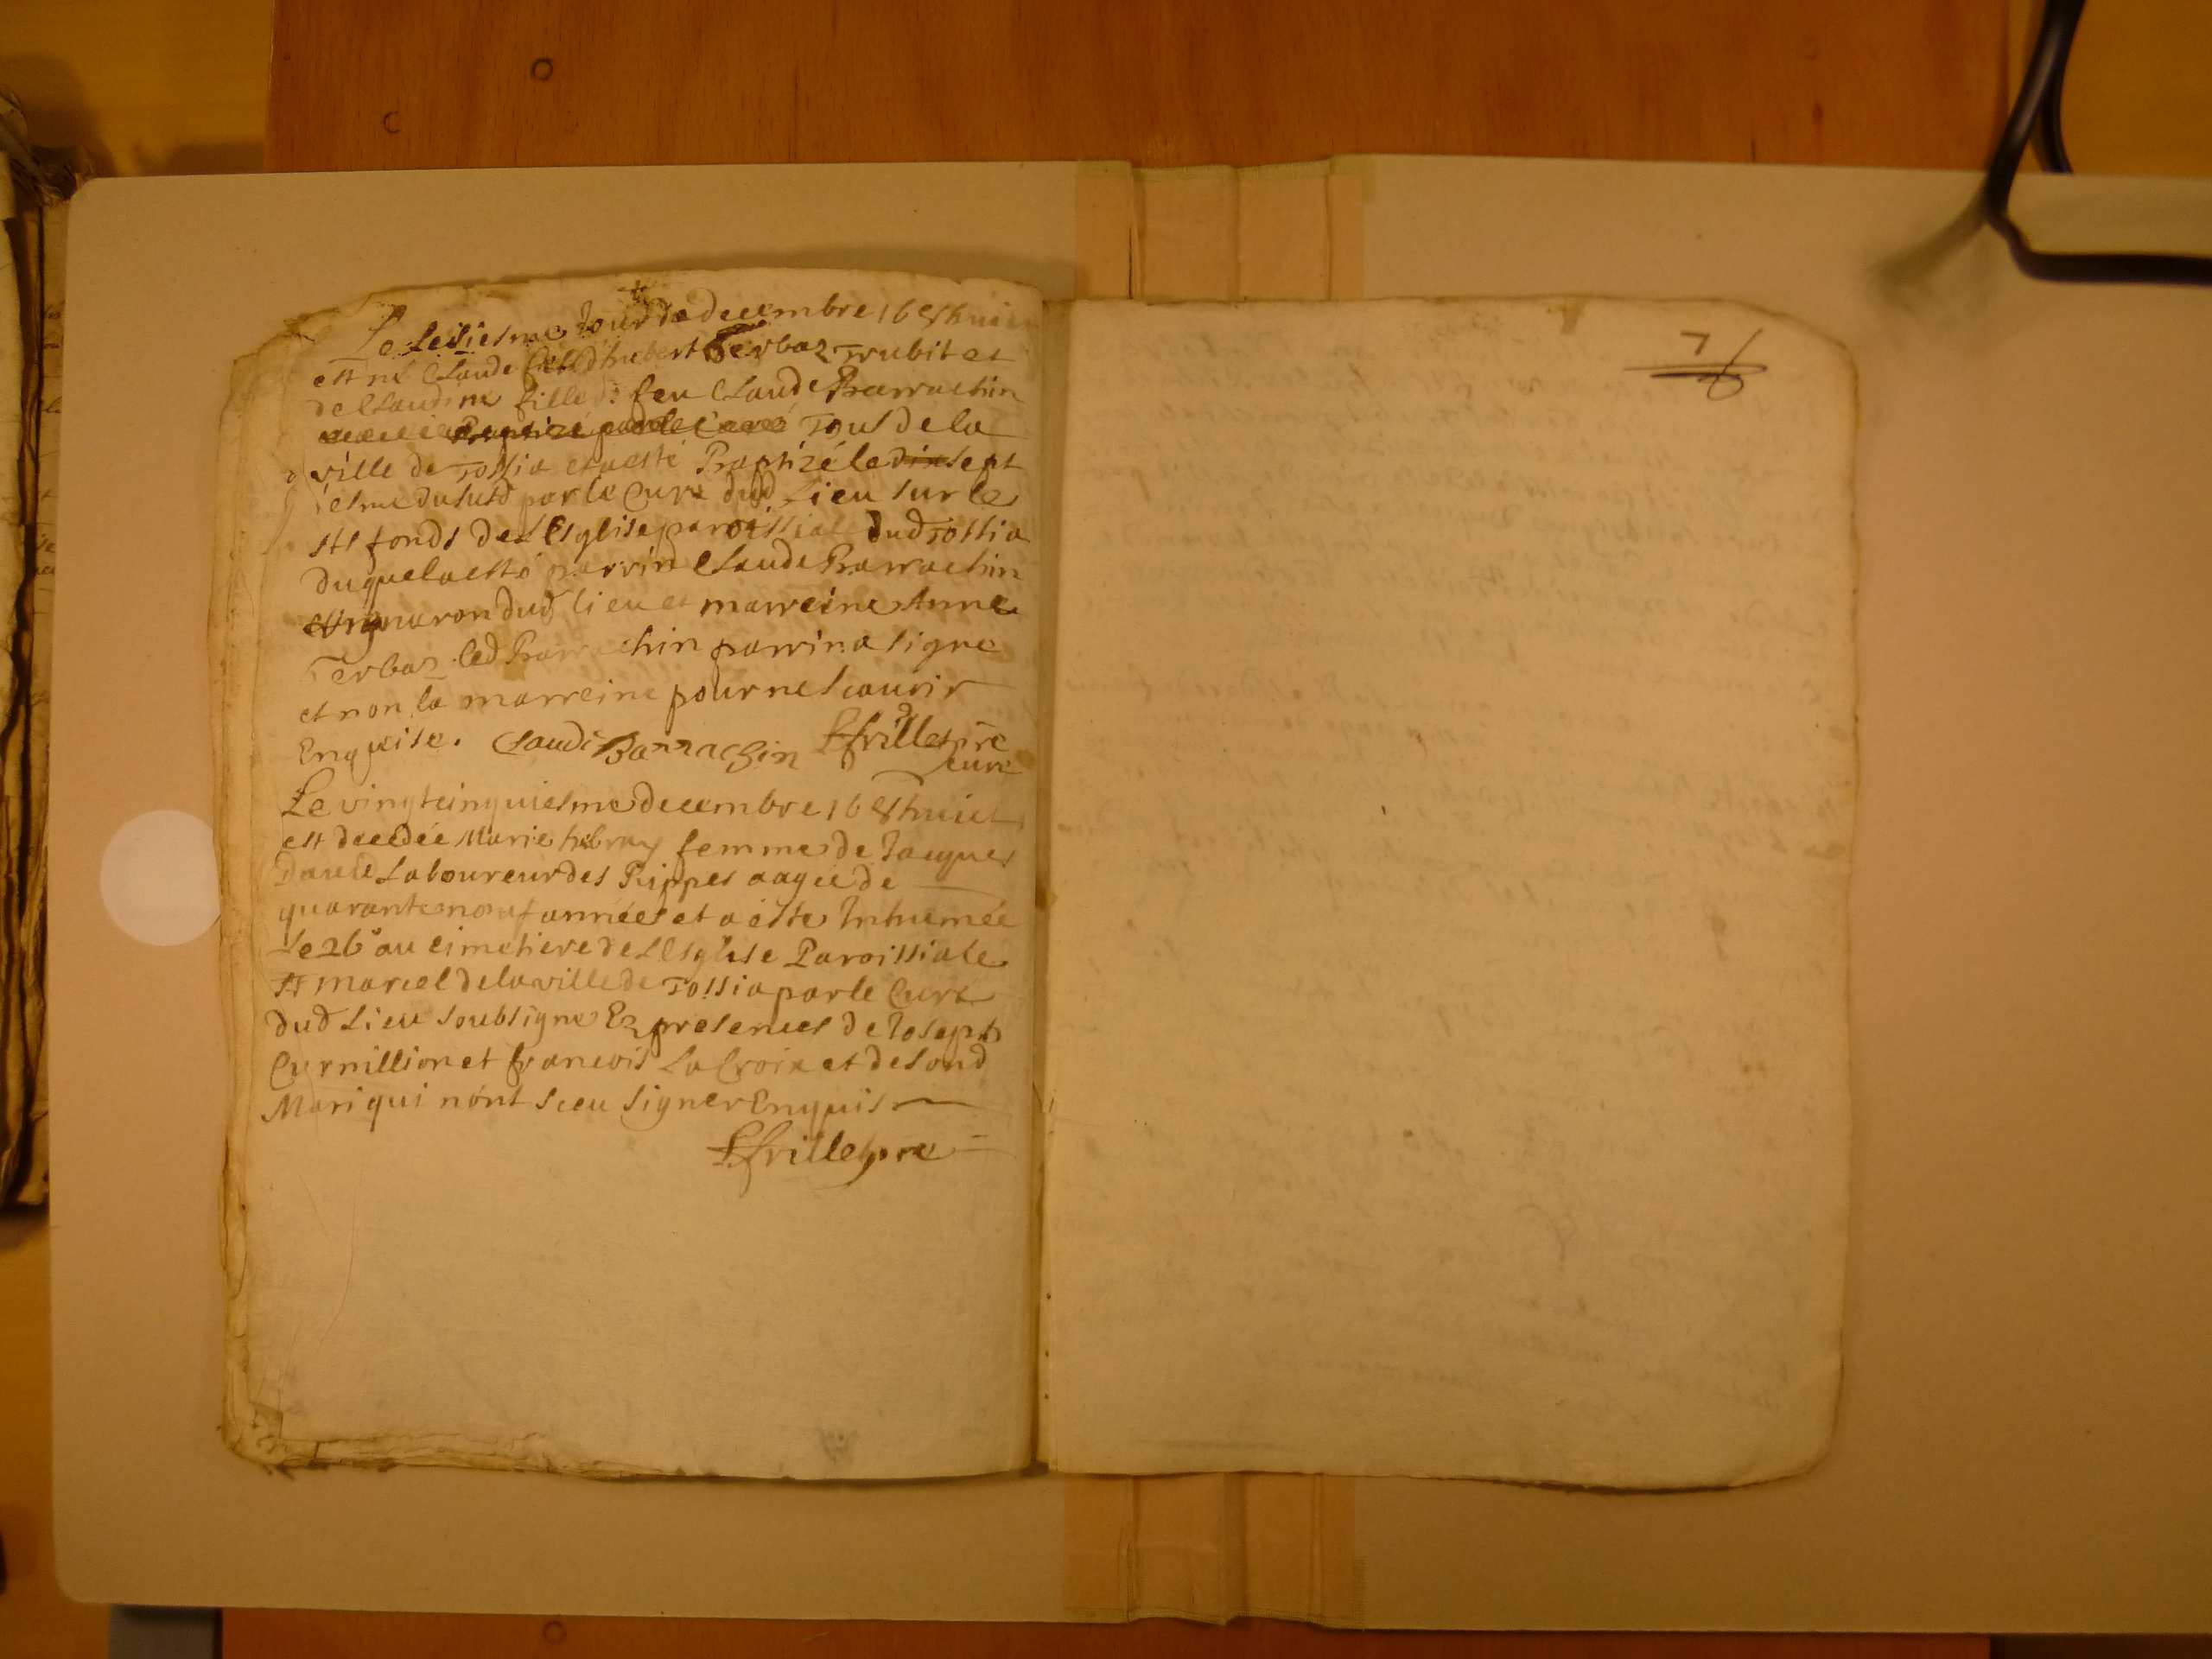 Le seisiesme Jour de decembre 16 & huict
est né Claude fils d'hubert Gerbaz Trubit et
de Claudine fille de feu Claude Barrachin
Baptizé par le Curé Tous de la
ville de Tossia et a esté Baptizé le dixsept
iesme du susd par le Curé dud Lieu sur les
sts fonds de l'Esglise paroissiale dud Tossia
duquel a esté parrin Claude Barrachin
vigneron dud lieu et marreine Anne
Gerbaz led Barrachin parrin a signe
et non la marreine pour ne scavoir
Enquise. Claude Barrachin Ffrillet pre
Curé
Le vingtcinquiesme decembre 16 & huict
est decedée Marie hebray femme de Jacques
Laboureur des Rippes aagée de
quarante neuf années et a este Inhumée
Le 26e au cimetiere de L'Esglise Paroissiale
St marcel de la ville de Tossia par le Curé
dud Lieu soubsigne Ez presences de Joseph
Curnillion et francois La Croix et de sond
Mari qui nónt sceu signer Enquis
Ffrillet pre
7